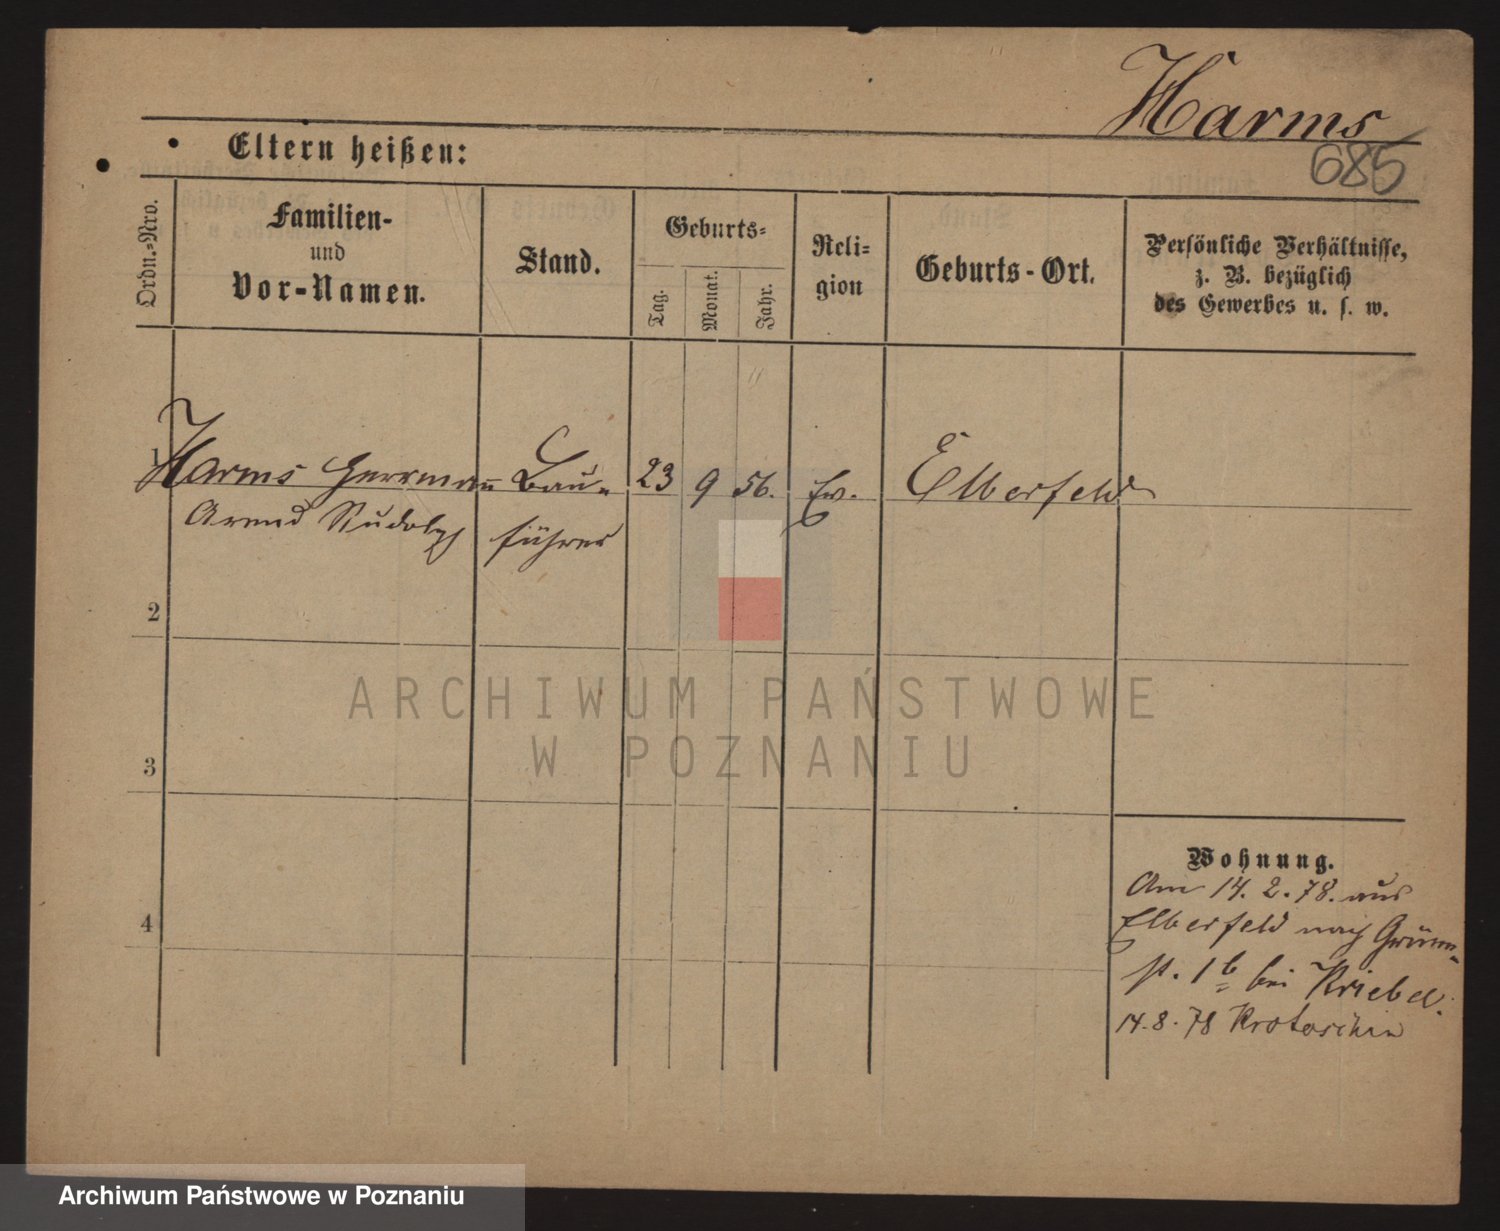 Harms
685
Eltern heißen:
Ordn.-Nro.
Familien-
und
Vor-Namen.
Stand.
Geburts-
Tag.
Monat.
Jahr.
Reli-
gion
Geburts-Ort.
Persönliche Verhältnisse,
z. B. bezüglich
des Gewerbes u. s. w.
1 Harms Herrmann Bau- 23 9 56. Ev. Elberfeld
Arend Rudolph führer
2
3
4
Wohnung.
Am 14. 2. 78. aus
Elberfeld nach
st. 1b bei Kriebel.
14. 8. 78 Krotoschin
ARCHIWUM PAŃSTWOWE
W POZNANIU
Archiwum Państwowe w Poznaniu